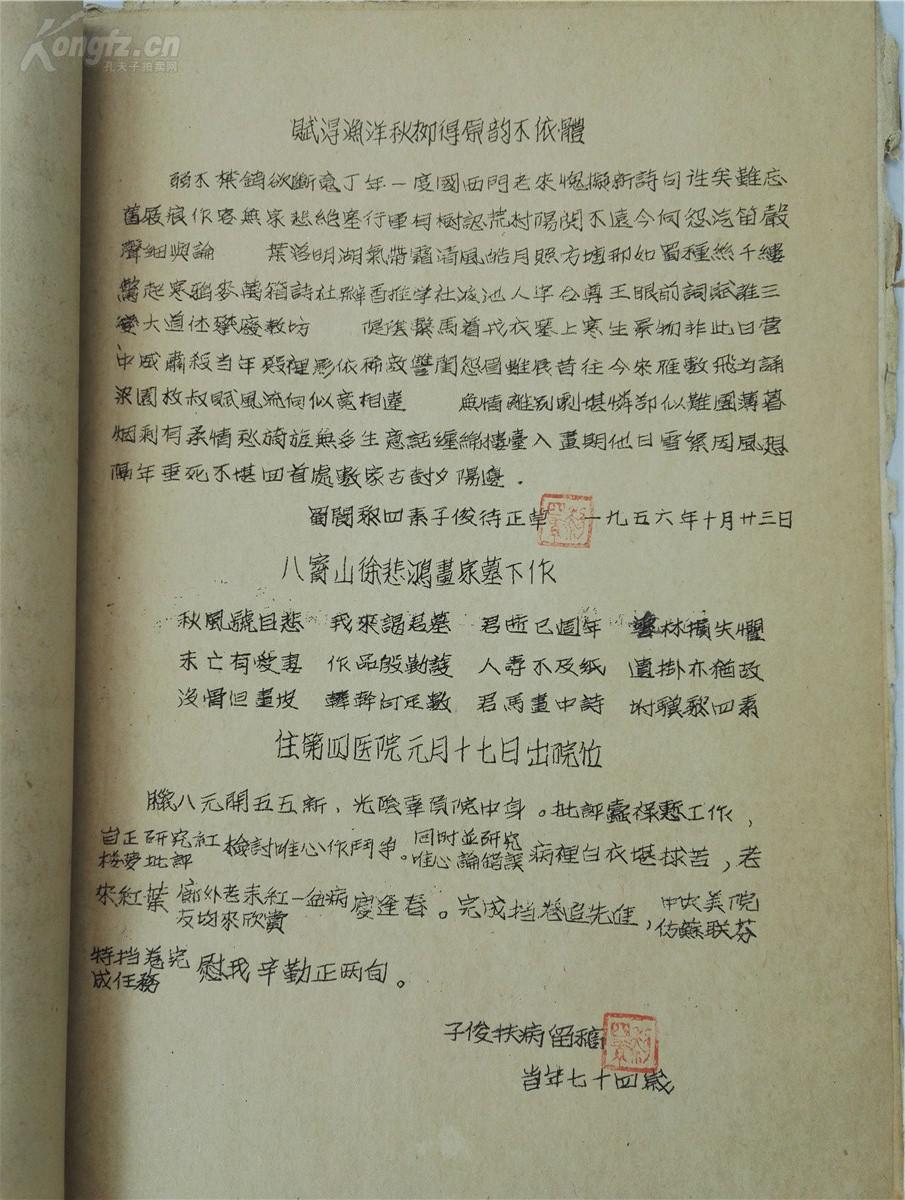 Kongfz.cn
孔夫子拍卖网
賦得漁洋秋柳得原韵不依體
弱不禁銷欲斷䰟丁年一度國西門老來愧擬新詩句往矣難忘
舊屐痕作客無家悲絕塞行車有樹認荒村陽関不遠今何怨汽笛聲
聲細與論 葉落明湖氣帶霜清風皓月照方塘那如蜀種絲千縷
驚起寒鴉麥萬箱詩社辦香推学社液池人字台尊王眼前詞賦誰三
變大道休藥廢教坊 隄陰繫馬着戎衣墓上寒生景物非此日营
中威肅殺当年殿裡影依稀敌讐閨怨圖雖展昔往今來雁數飛为誦
梁園枚叔賦風流何似竟相違 無情離别劇堪憐却似難團薄暮
烟剩有柔情秋旖旎無多生意話纏綿樓臺入畫期他日雪絮因風想
隔年垂死不堪回首處數家古對夕陽邊．
蜀閬黎四素子俊待正草 一九五六年十月廿三日
八寳山徐悲鴻畫家墓下作
秋風號自悲 我來謁君墓 君逝已週年 林損失懼
未亡有愛妻 作品般勤護 人尋不及紙 遺掛亦猶故
沒骨但畫皮 韓幹何足數 君馬畫中詩 附驥黎四素
住第四医院元月十七日出院作
臘八元開五五新，光陰辜負院中身。批評蠹祿慙工作，
自正研究紅
楼夢批評 檢討唯心作鬥爭。同时並研究
唯心論錯誤 病裡白衣堪捄苦，老
來紅葉 廊外老来紅一盆病
友均來欣賞 慶逢春。完成挡卷追先進，中央美院
仿蘇联芬
特挡卷完
成任務 慰我辛勤正两旬。
子俊扶病留稿
当年七十四歲